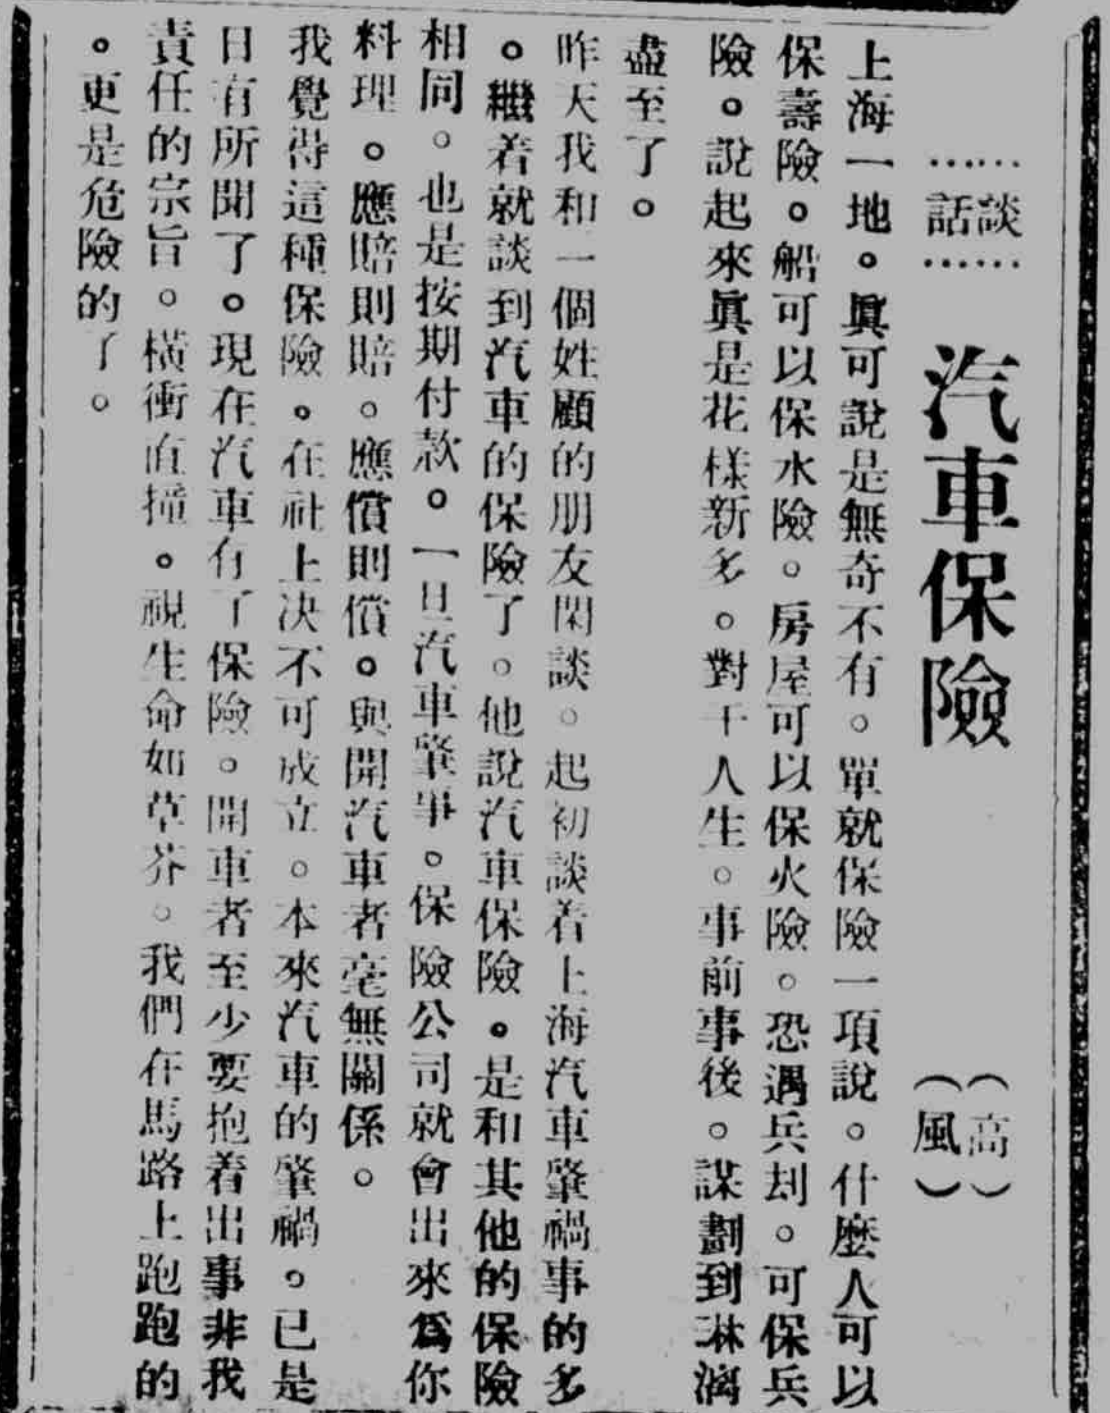 ……談話……
汽車保險
（高）
（風）
上海一地。眞可說是無奇不有。單就保險一項說。什麼人可以
保壽險。船可以保水險。房屋可以保火險。恐遇兵刦。可保兵
險。說起來眞是花樣新多。對于人生。事前事後。謀劃到淋漓
盡至了。
昨天我和一個姓顧的朋友閑談。起初談着上海汽車肇禍事的多
。繼着就談到汽車的保險了。他說汽車保險。是和其他的保險
相同。也是按期付款。一旦汽車肇事。保險公司就會出來爲你
料理。應賠則賠。應償則償。與開汽車者毫無關係。
我覺得這種保險。在社上决不可成立。本來汽車的肇禍。已是
日有所聞了。現在汽車有了保險。開車者至少要抱着出事非我
責任的宗旨。橫衝直撞。視生命如草芥。我們在馬路上跑跑的
。更是危險的了。